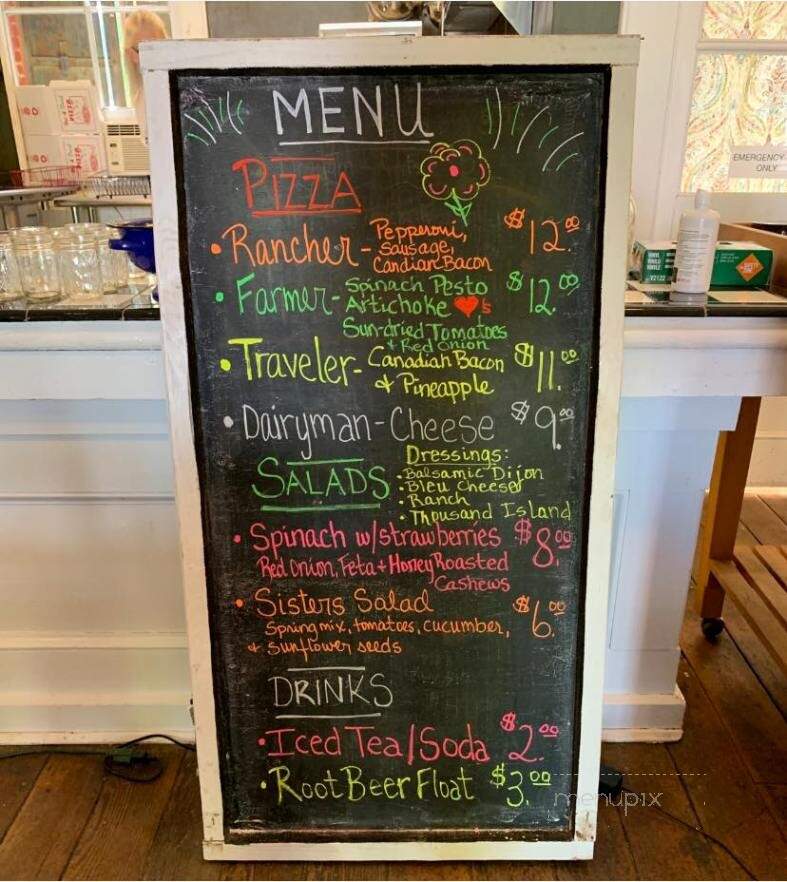 MENU
PIZZA
• Rancher - Pepperoni, $12.00
Sausage,
Candian Bacon
• Farmer - Spinach Pesto $12.00
Artichoke ❤'s
Sun-dried Tomatoes
+ Red Onion
• Traveler - Canadian Bacon $11.00
& Pineapple
• Dairyman - Cheese $9.00
SALADS
Dressings:
• Balsamic Dijon
• Bleu Cheese
• Ranch
• Thousand Island
• Spinach w/strawberries $8.00
Red onion, Feta + Honey Roasted
Cashews
• Sisters Salad $6.00
Spring mix, tomatoes, cucumber,
+ sunflower seeds
DRINKS
• Iced Tea/Soda $2.00
• Root Beer Float $3.00
EMERGENCY
ONLY
VINYL
V2122
menupix